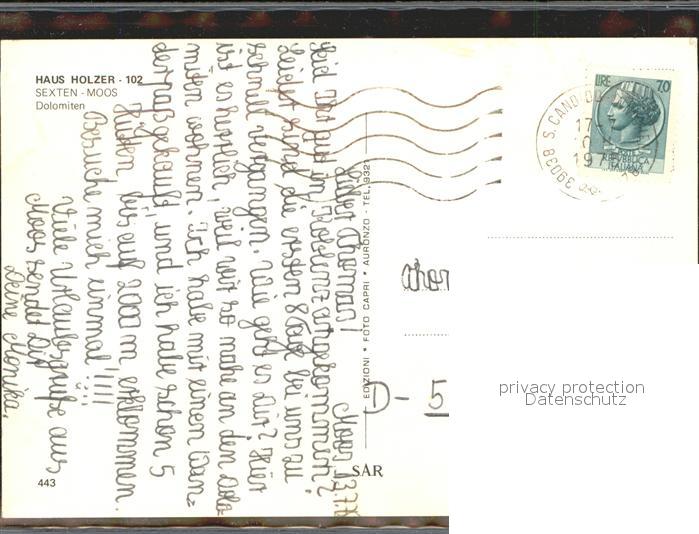 HAUS HOLZER - 102
SEXTEN - MOOS
Dolomiten
Moos, 13.7.76
Lieber Thomas!
Seid Ihr gut in Koblenz angekommen?
Leider sind die ersten 8 Tage bei uns zu
schnell vergangen. Wie geht es Dir? Hier
ist es herrlich, weil wir so nahe an den Dolo-
miten wohnen. Ich habe mir einen Wan-
derpaß gekauft und ich habe schon 5
Hütten bis auf 2000 m erklommen.
Besuche mich einmal!!!!
Viele Urlaubsgrüße aus
Moos sendet Dir
Deine Monika.
EDIZIONI * FOTO CAPRI * AURONZO - TEL. 932
39038 S. CANDIDO
17
19
LIRE 70
REPVBBLICA
ITALIANA
D- 5
privacy protection
Datenschutz
443
SAR